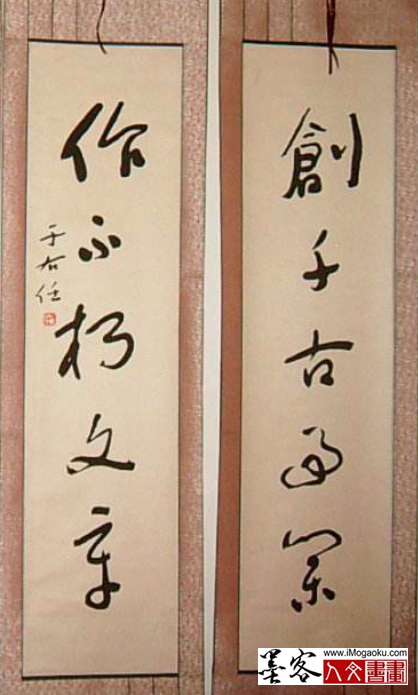 創千古事業
作不朽文章
于右任
墨客
www.iMogaoku.com
人文書畫